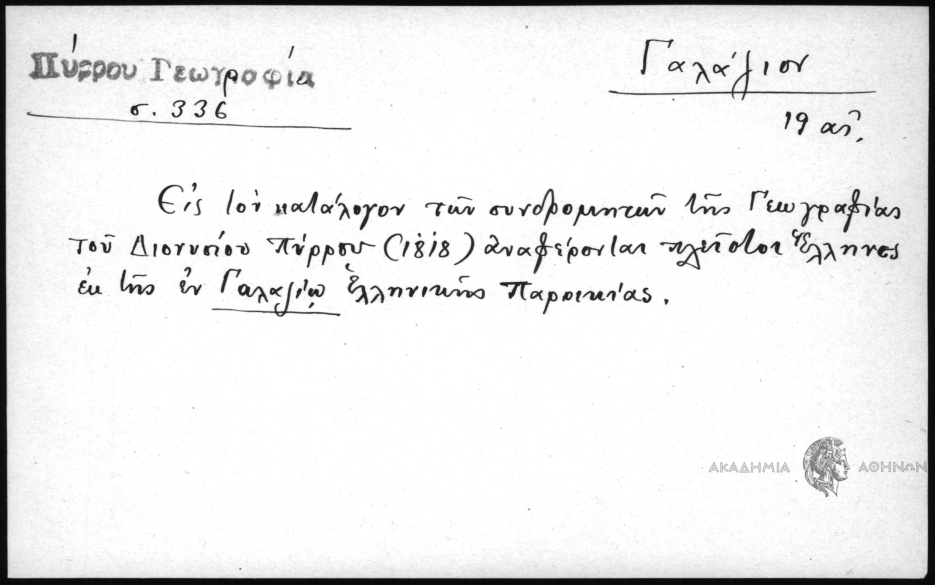 Πύρρου Γεωγραφία
σ. 336
Γαλάζιον
19 αἰ.
Εἰς τὸν κατάλογον τῶν συνδρομητῶν τῆς Γεωγραφίας
τοῦ Διονυσίου Πύρρου (1818) ἀναφέρονται πλεῖστοι Ἕλληνες
ἐκ τῆς ἐν Γαλαζίῳ Ἑλληνικῆς Παροικίας.
ΑΚΑΔΗΜΙΑ ΑΘΗΝΩΝ